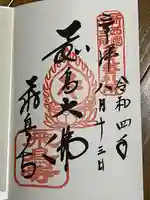 奉拝
令和四年
八月十三日
飛鳥大佛
飛鳥寺